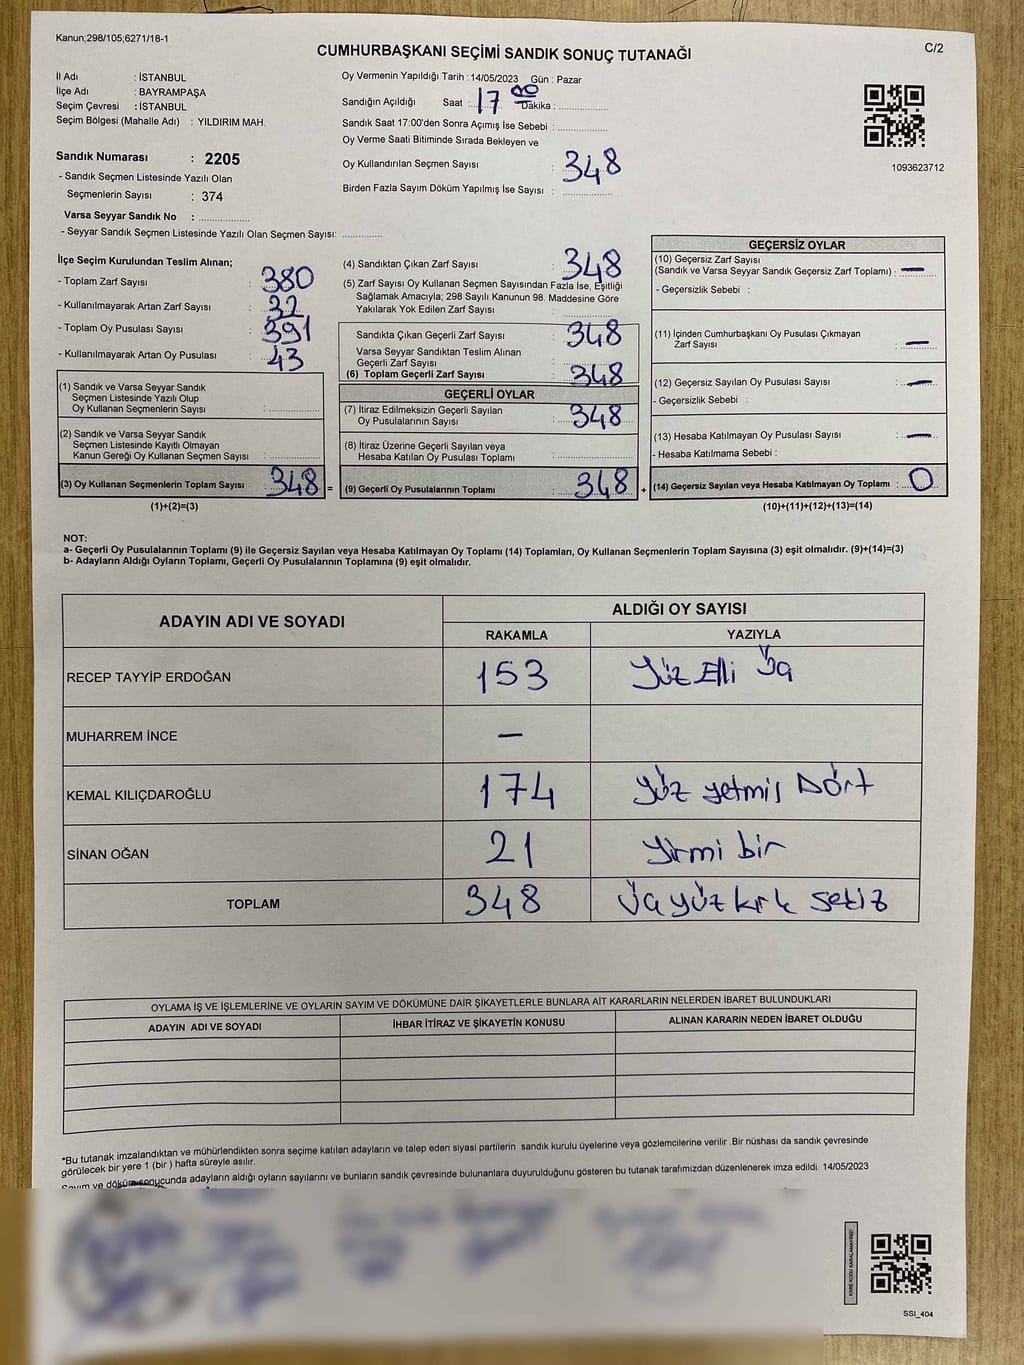 Kanun;298/105;6271/18-1
C/2
CUMHURBAŞKANI SEÇİMİ SANDIK SONUÇ TUTANAĞI
İl Adı : İSTANBUL
İlçe Adı : BAYRAMPAŞA
Seçim Çevresi : İSTANBUL
Seçim Bölgesi (Mahalle Adı) : YILDIRIM MAH.
Sandık Numarası : 2205
- Sandık Seçmen Listesinde Yazılı Olan
Seçmenlerin Sayısı : 374
Varsa Seyyar Sandık No : ..................
- Seyyar Sandık Seçmen Listesinde Yazılı Olan Seçmen Sayısı: ..............
Oy Vermenin Yapıldığı Tarih :14/05/2023 Gün : Pazar
Sandığın Açıldığı Saat : 17 Dakika : 00
Sandık Saat 17:00'den Sonra Açımış İse Sebebi : ..................
Oy Verme Saati Bitiminde Sırada Bekleyen ve
Oy Kullandırılan Seçmen Sayısı : 348
Birden Fazla Sayım Döküm Yapılmış İse Sayısı : ..................
1093623712
İlçe Seçim Kurulundan Teslim Alınan;
- Toplam Zarf Sayısı : 380
- Kullanılmayarak Artan Zarf Sayısı : 32
- Toplam Oy Pusulası Sayısı : 391
- Kullanılmayarak Artan Oy Pusulası : 43
(1) Sandık ve Varsa Seyyar Sandık
Seçmen Listesinde Yazılı Olup
Oy Kullanan Seçmenlerin Sayısı : ..................
(2) Sandık ve Varsa Seyyar Sandık
Seçmen Listesinde Kayıtlı Olmayan
Kanun Gereği Oy Kullanan Seçmen Sayısı : ..................
(3) Oy Kullanan Seçmenlerin Toplam Sayısı : 348 =
(1)+(2)=(3)
(4) Sandıktan Çıkan Zarf Sayısı : 348
(5) Zarf Sayısı Oy Kullanan Seçmen Sayısından Fazla İse, Eşitliği
Sağlamak Amacıyla; 298 Sayılı Kanunun 98. Maddesine Göre
Yakılarak Yok Edilen Zarf Sayısı : ..................
Sandıkta Çıkan Geçerli Zarf Sayısı : 348
Varsa Seyyar Sandıktan Teslim Alınan
Geçerli Zarf Sayısı : ..................
(6) Toplam Geçerli Zarf Sayısı : 348
GEÇERLİ OYLAR
(7) İtiraz Edilmeksizin Geçerli Sayılan
Oy Pusulalarının Sayısı : 348
(8) İtiraz Üzerine Geçerli Sayılan veya
Hesaba Katılan Oy Pusulası Toplamı : ..................
(9) Geçerli Oy Pusulalarının Toplamı : 348 +
GEÇERSİZ OYLAR
(10) Geçersiz Zarf Sayısı
(Sandık ve Varsa Seyyar Sandık Geçersiz Zarf Toplamı) : —
- Geçersizlik Sebebi :
(11) İçinden Cumhurbaşkanı Oy Pusulası Çıkmayan
Zarf Sayısı : —
(12) Geçersiz Sayılan Oy Pusulası Sayısı : —
- Geçersizlik Sebebi :
(13) Hesaba Katılmayan Oy Pusulası Sayısı : —
- Hesaba Katılmama Sebebi :
(14) Geçersiz Sayılan veya Hesaba Katılmayan Oy Toplamı : 0
(10)+(11)+(12)+(13)=(14)
NOT:
a- Geçerli Oy Pusulalarının Toplamı (9) ile Geçersiz Sayılan veya Hesaba Katılmayan Oy Toplamı (14) Toplamları, Oy Kullanan Seçmenlerin Toplam Sayısına (3) eşit olmalıdır. (9)+(14)=(3)
b- Adayların Aldığı Oyların Toplamı, Geçerli Oy Pusulalarının Toplamına (9) eşit olmalıdır.
ADAYIN ADI VE SOYADI ALDIĞI OY SAYISI
RAKAMLA YAZIYLA
RECEP TAYYİP ERDOĞAN 153 Yüz Elli Üç
MUHARREM İNCE —
KEMAL KILIÇDAROĞLU 174 Yüz yetmiş Dört
SİNAN OĞAN 21 Yirmi bir
TOPLAM 348 Üçyüz kırk sekiz
OYLAMA İŞ VE İŞLEMLERİNE VE OYLARIN SAYIM VE DÖKÜMÜNE DAİR ŞİKAYETLERLE BUNLARA AİT KARARLARIN NELERDEN İBARET BULUNDUKLARI
ADAYIN ADI VE SOYADI İHBAR İTİRAZ VE ŞİKAYETİN KONUSU ALINAN KARARIN NEDEN İBARET OLDUĞU
*Bu tutanak imzalandıktan ve mühürlendikten sonra seçime katılan adayların ve talep eden siyasi partilerin sandık kurulu üyelerine veya gözlemcilerine verilir .Bir nüshası da sandık çevresinde
görülecek bir yere 1 (bir ) hafta süreyle asılır.
Sayım ve döküm sonucunda adayların aldığı oyların sayılarını ve bunların sandık çevresinde bulunanlara duyurulduğunu gösteren bu tutanak tarafımızdan düzenlenerek imza edildi. 14/05/2023
KARE KODU KARALAMAYINIZ!
SSI_404